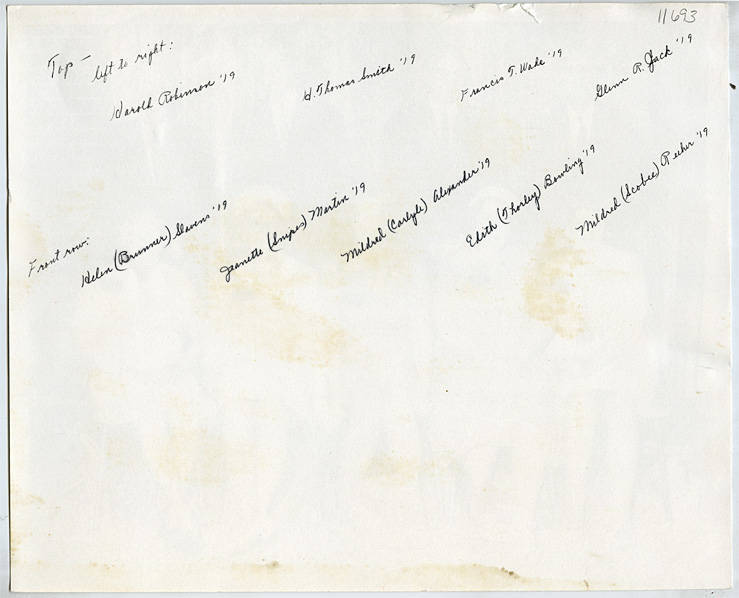 11693
Top - left to right:
Harold Robinson '19
H. Thomas Smith '19
Francis T. Wade '19
Glenn R. Jack '19
Front row:
Helen (Brunner) Slavens '19
Jeanette (Snipes) Martin '19
Mildred (Carlyle) Alexander '19
Edith (Thorley) Bowling '19
Mildred (Scobee) Peeker '19